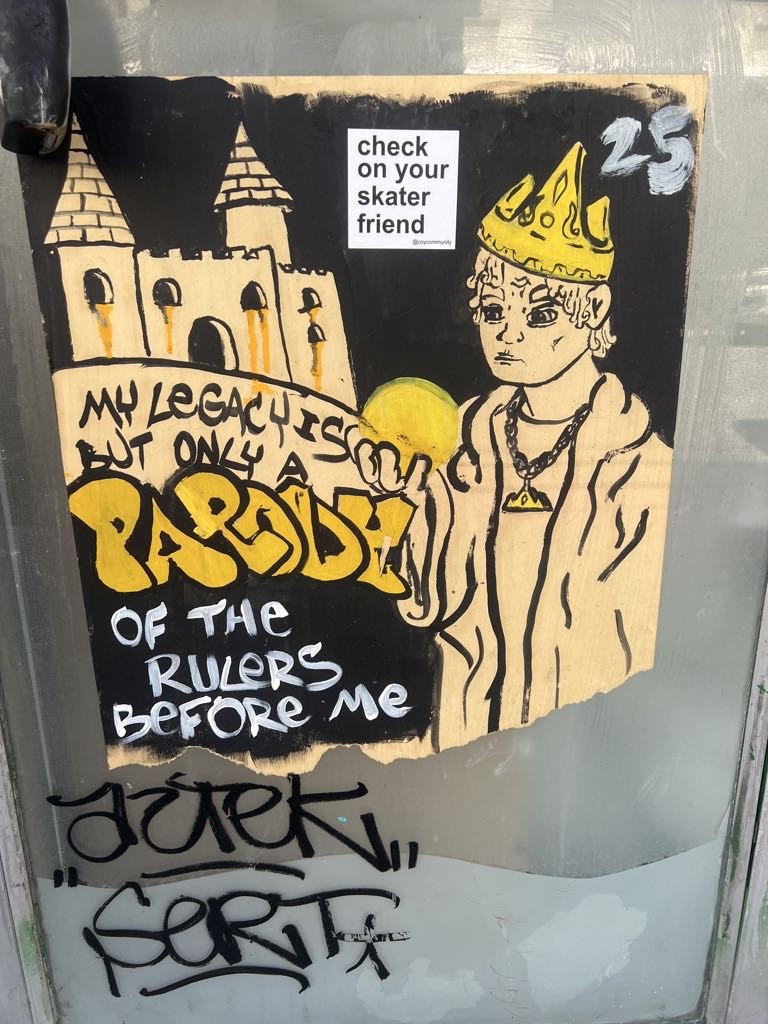 25
check
on your
skater
friend
@coycommunity
MY LEGACY IS
BUT ONLY A
PARODY
OF THE
RULERS
BEFORE ME
aztek
"SERT"